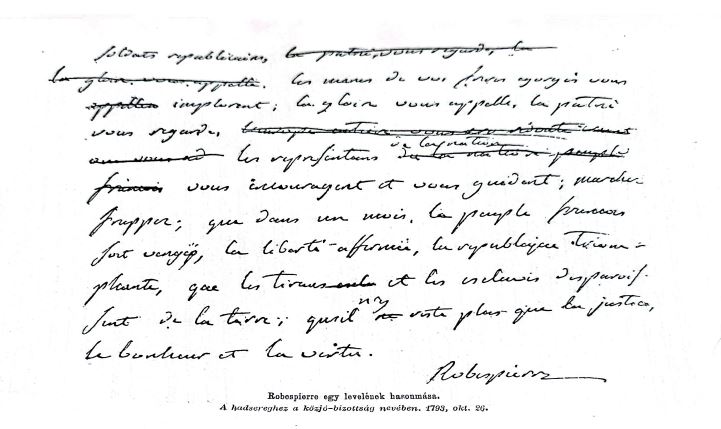 Soldats républicains, la patrie, vous regarde, la
la gloire vous appelle. les manes de vos freres egorgés vous
appellent implorent; la gloire vous appelle, la patrie
vous regarde, l'europe entière vous
les représentans de la nation
de la nation peuple
francais vous encouragent et vous guident; marchez
frappez; que dans un mois, le peuple francais
soit vengé, la liberté affermie, la république triom-
phante, que les tirans et les esclaves disparois-
sent de la terre; qu'il
n'y
reste plus que la justice,
le bonheur et la vertu.
Robespierre
Robespierre egy levelének hasonmása.
A hadsereghez a közjó-bizottság nevében. 1793, okt. 26.